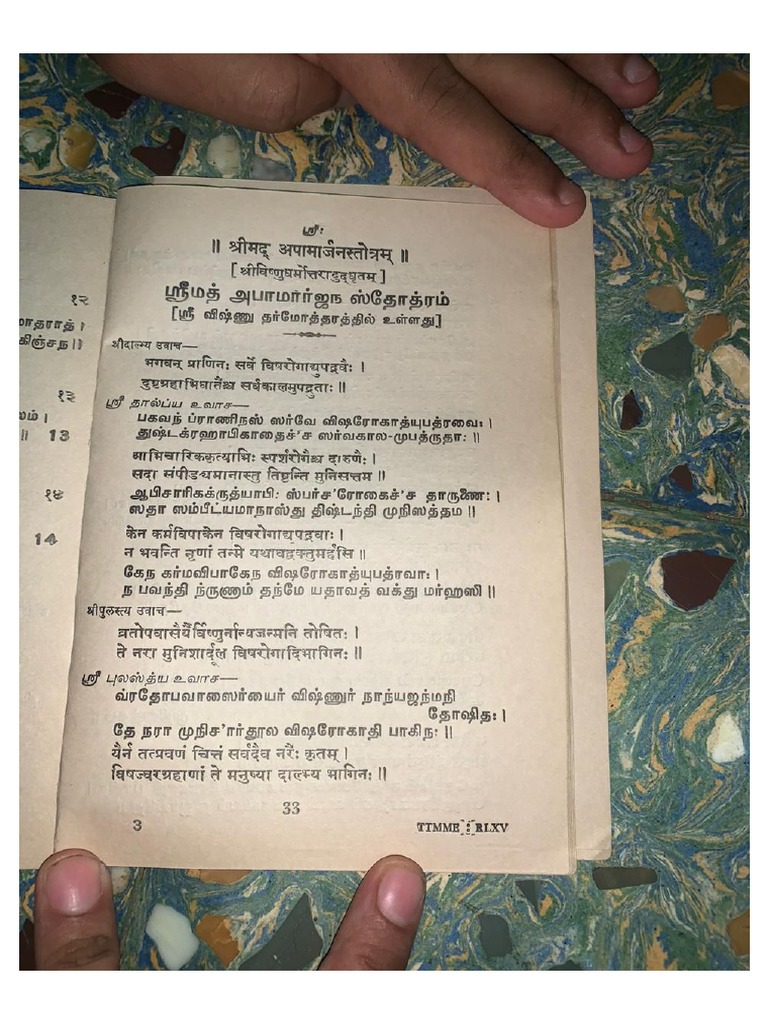 १२
மாதராத் |
கிஞ்சந ||
१३
லம் |
|| 13
१४
14
ஸ்ரீ:
॥ श्रीमद् अपामार्जनस्तोत्रम् ॥
[ श्रीविष्णुधर्मोत्तरादुद्धृतम् ]
ஸ்ரீமத் அபாமார்ஜந ஸ்தோத்ரம்
[ஸ்ரீ விஷ்ணு தர்மோத்தரத்தில் உள்ளது]
श्रीदाल्भ्य उवाच—
भगवन् प्राणिनः सर्वे विषरोगाद्युपद्रवैः ।
दुष्टग्रहाभिघातैश्च सर्वकालमुपद्रुताः ॥
ஸ்ரீ தால்ப்ய உவாச—
பகவந் ப்ராணிநஸ் ஸர்வே விஷரோகாத்யுபத்ரவை: |
துஷ்டக்ரஹாபிகாதைச்'ச ஸர்வகால-முபத்ருதா: ||
आभिचारिककृत्याभिः स्पर्शरोगैश्च दारुणैः ।
सदा संपीड्यमानास्तु तिष्ठन्ति मुनिसत्तम ॥
ஆபிசாரிகக்ருத்யாபி: ஸ்பர்ச'ரோகைச்'ச தாருணை: |
ஸதா ஸம்பீட்யமாநாஸ்து திஷ்டந்தி முநிஸத்தம ||
केन कर्मविपाकेन विषरोगाद्युपद्रवाः ।
न भवन्ति नृणां तन्मे यथावद्वक्तुमर्हसि ॥
கேந கர்மவிபாகேந விஷரோகாத்யுபத்ரவா: |
ந பவந்தி ந்ருணாம் தந்மே யதாவத் வக்து மர்ஹஸி ||
श्रीपुलस्त्य उवाच—
व्रतोपवासैर्यैर्विष्णुर्नान्यजन्मनि तोषितः ।
ते नरा मुनिशार्दूल विषरोगादिभागिनः ॥
ஸ்ரீ புலஸ்த்ய உவாச—
வ்ரதோபவாஸைர்யைர் விஷ்ணுர் நாந்யஜந்மநி
தோஷித: |
தே நரா முநிசா'ர்தூல விஷரோகாதி பாகிந: ||
यैर्न तत्प्रवणं चित्तं सर्वदैव नरैः कृतम् ।
विषज्वरग्रहाणां ते मनुष्या दाल्भ्य भागिनः ॥
33
3 TTMME RLXV